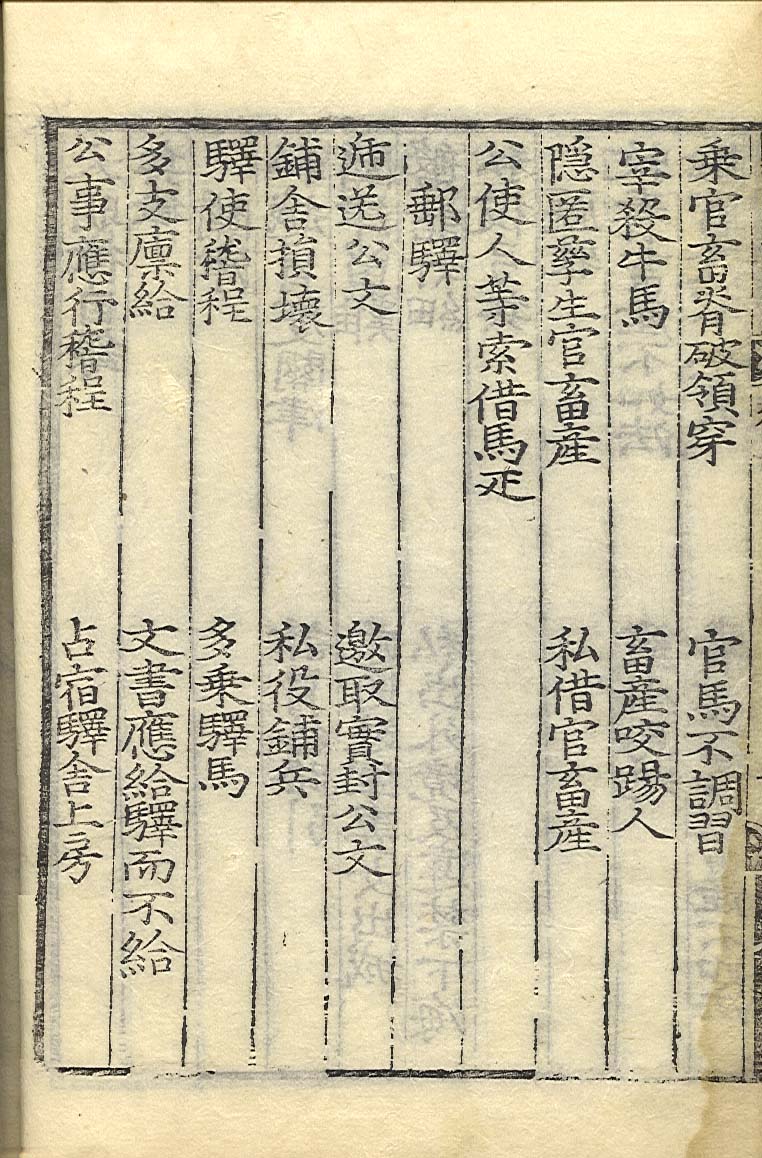 乗官畜脊破領穿　官馬不調習
宰殺牛馬　畜產咬踢人
隱匿孳生官畜產　私借官畜產
公使人等索借馬疋
郵驛
逓送公文　邀取實封公文
鋪舍損壞　私役鋪兵
驛使稽程　多乗驛馬
多支廪給　文書應給驛而不給
公事應行稽程　占宿驛舍上房